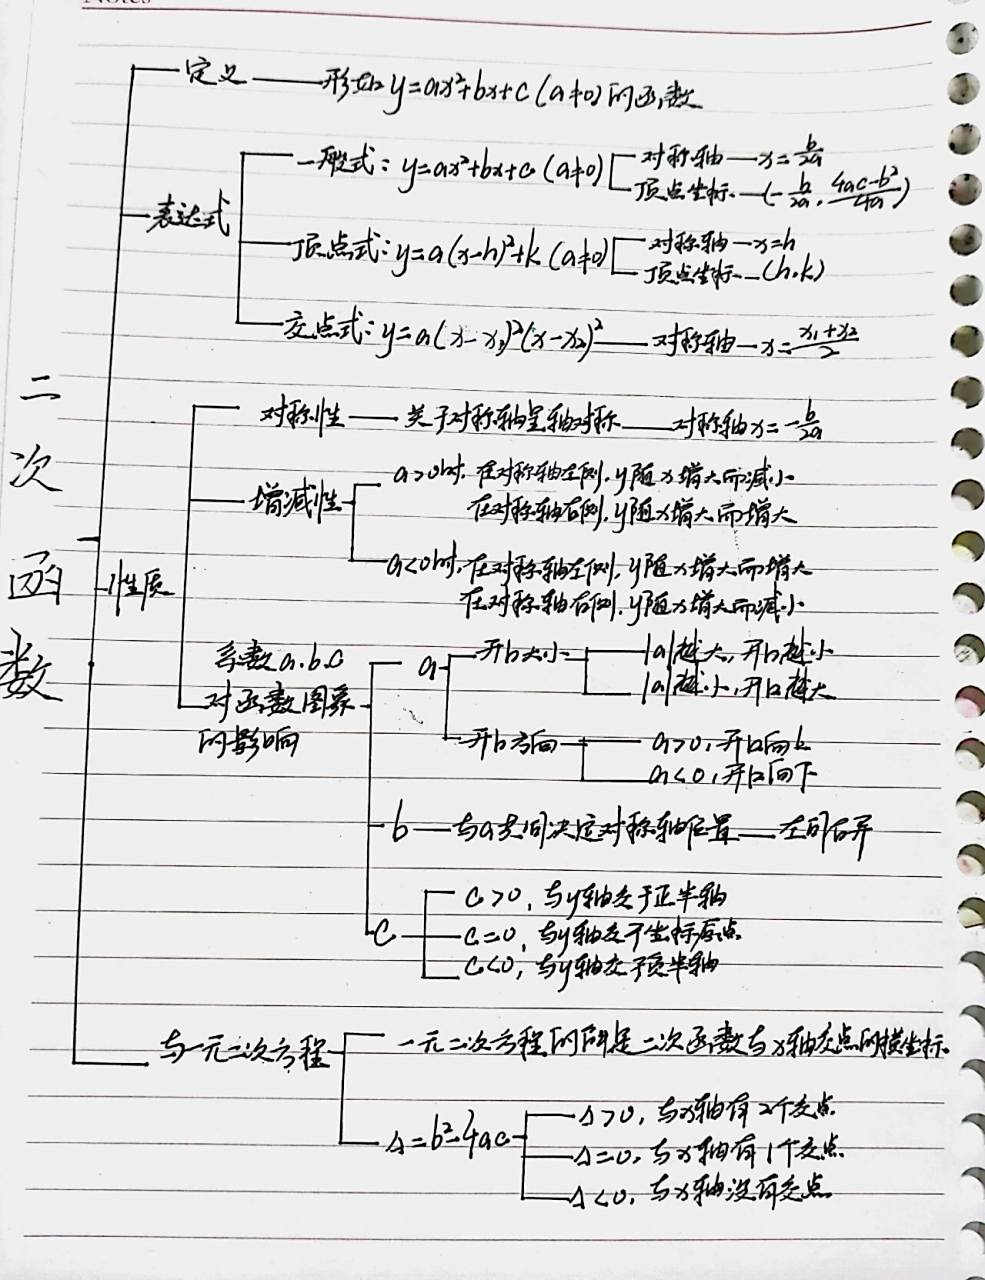 Notes
二次函数
定义——形如y=ax²+bx+c(a≠0)的函数
表达式
一般式:y=ax²+bx+c(a≠0)
对称轴—x=b/2a
顶点坐标—(-b/2a,(4ac-b²)/4a)
顶点式:y=a(x-h)²+k(a≠0)
对称轴—x=h
顶点坐标—(h,k)
交点式:y=a(x-x₁)²(x-x₂)²——对称轴—x=(x₁+x₂)/2
性质
对称性——关于对称轴呈轴对称——对称轴x=-b/2a
增减性
a>0时,在对称轴左侧,y随x增大而减小
在对称轴右侧,y随x增大而增大
a<0时,在对称轴左侧,y随x增大而增大
在对称轴右侧,y随x增大而减小
系数a.b.c
对函数图象
的影响
a
开口大小
|a|越大,开口越小
|a|越小,开口越大
开口方向
a>0,开口向上
a<0,开口向下
b——与a共同决定对称轴位置——左同右异
c
c>0,与y轴交于正半轴
c=0,与y轴交于坐标原点
c<0,与y轴交于负半轴
与一元二次方程
一元二次方程的解是二次函数与x轴交点的横坐标.
Δ=b²-4ac
Δ>0,与x轴有2个交点
Δ=0,与x轴有1个交点
Δ<0,与x轴没有交点